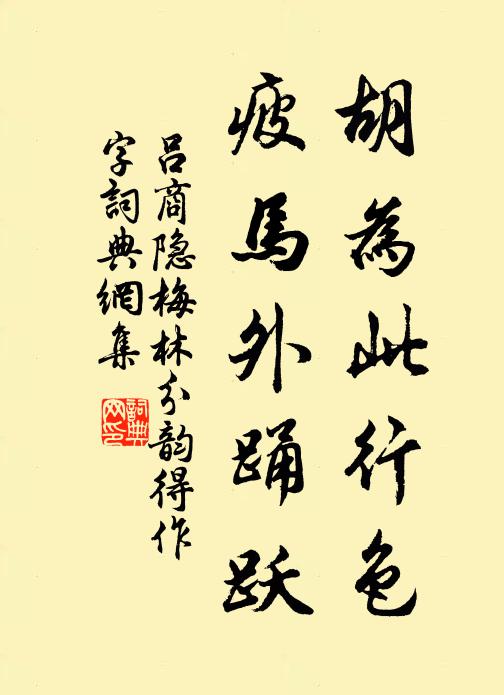 胡為此行色
疲馬外踊跃
吕商隐梅林分韵得作
字詞典網集
詞典
网印